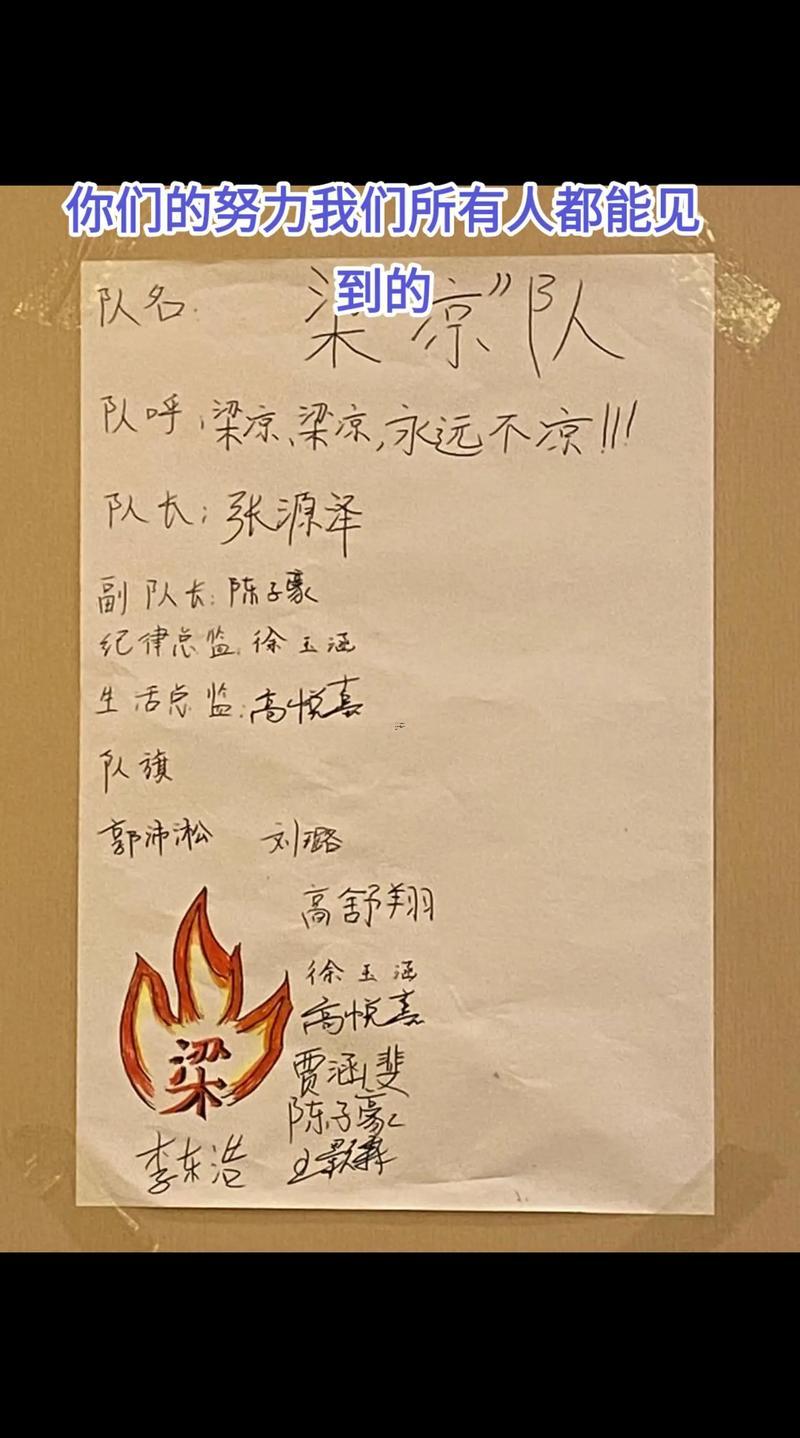 你们的努力我们所有人都能见
到的
队名: 梁凉"队
队呼:梁凉、梁凉,永远不凉!!!
队长:张源泽
副队长:陈子豪
纪律总监:徐玉涵
生活总监:高悦嘉
队旗
郭沛淞 刘璐
高舒翔
徐玉涵
高悦嘉
贾涵斐
陈子豪
梁
李东浩